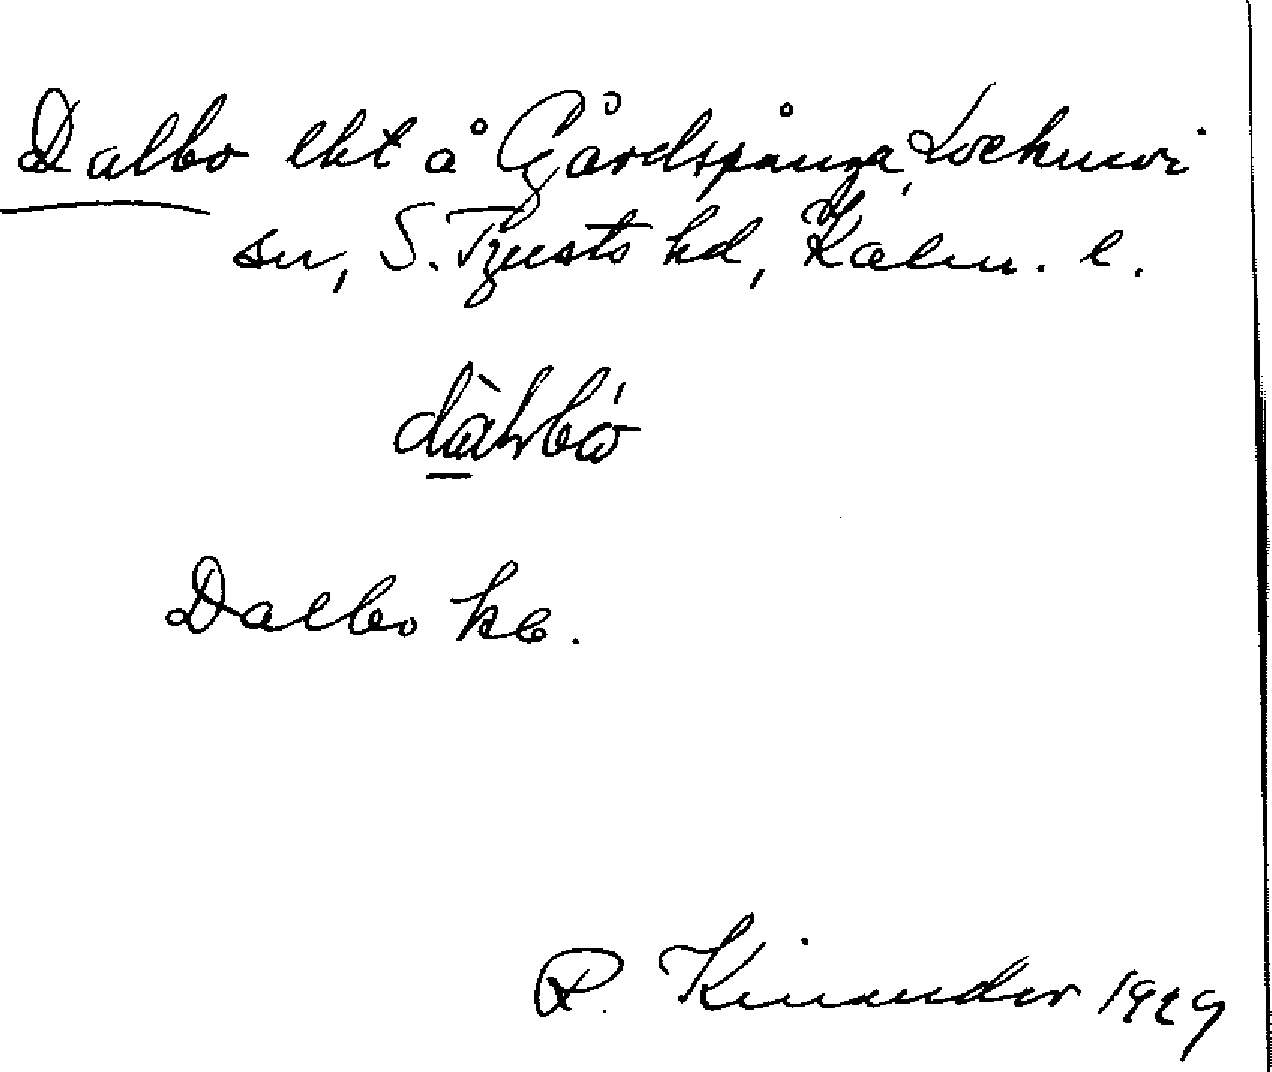 Dalbo lht å Gårdspånga, Locknevi
sn, S. Tjusts hd, Kalm. l.
dàlbó
Dalbo kb.
R. Kinander 1929